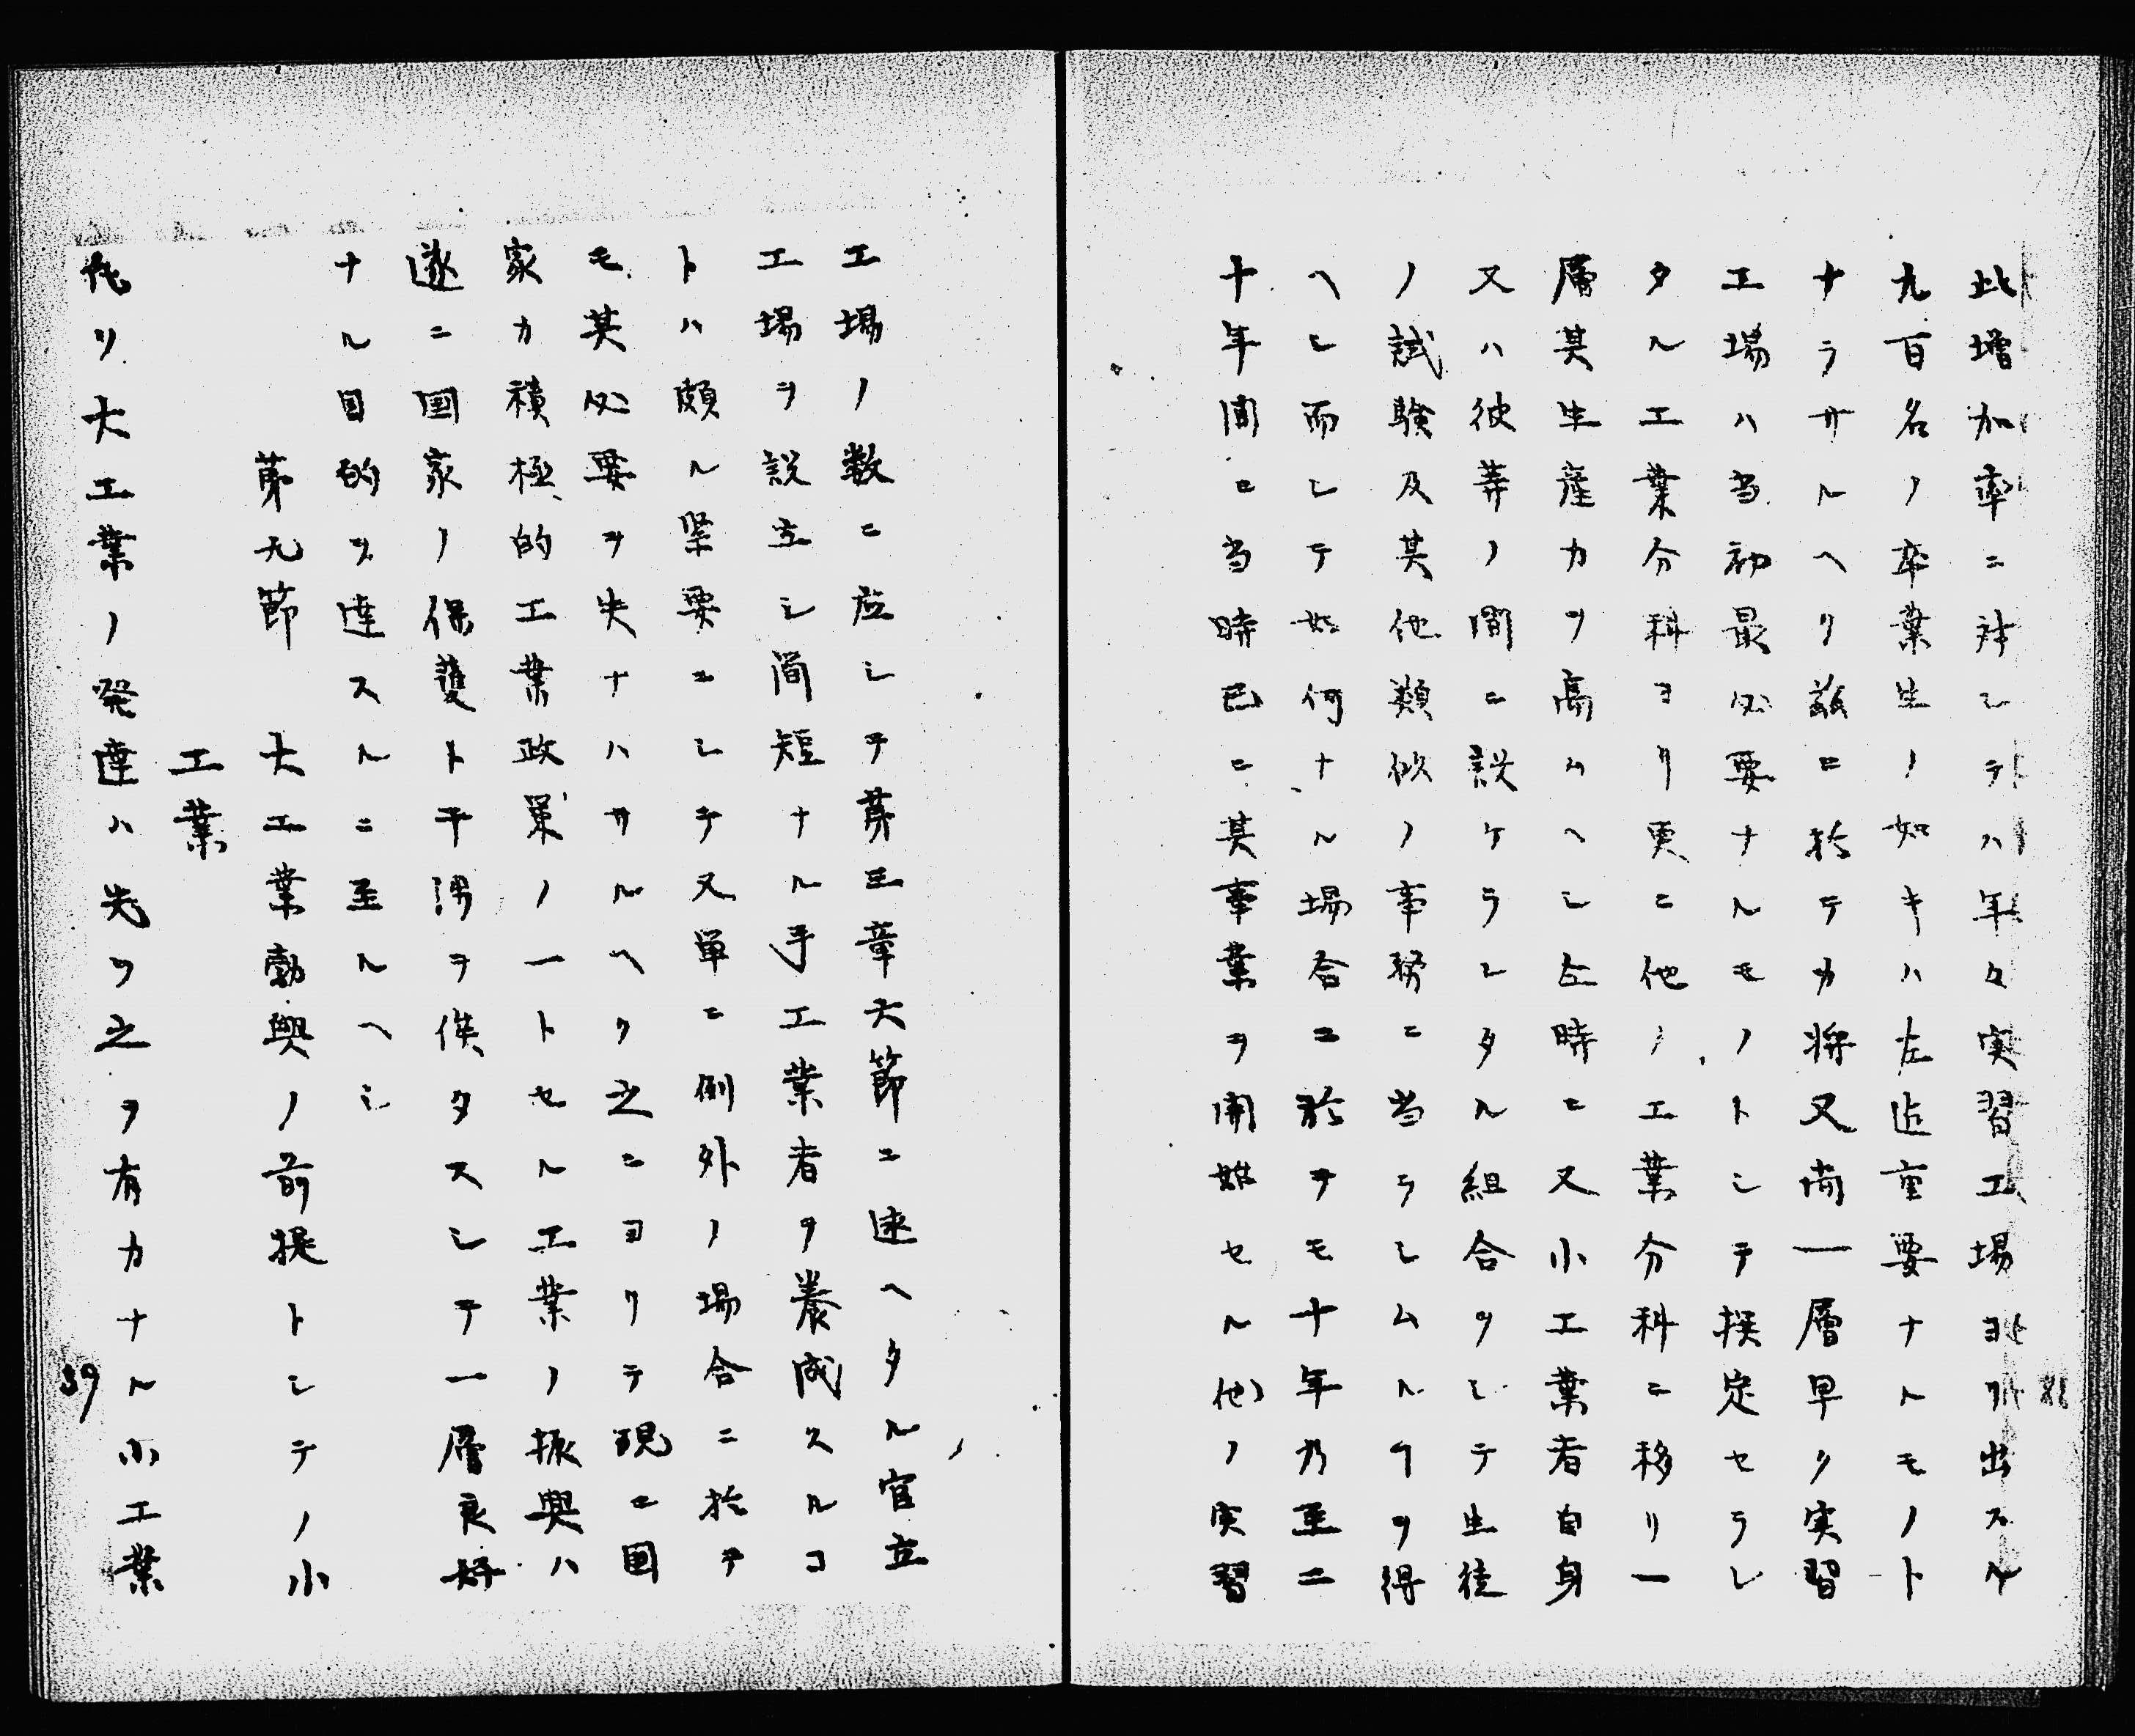 此増加率ニ対シテハ年々実習工場ヨリ出スル
九百名ノ卒業生ノ如キハ左迄重要ナルモノト
ナラサルヘク茲ニ於テカ将又尚一層早ク実習
工場ハ当初最必要ナルモノトシテ撰定セラレ
タル工業分科ヨリ更ニ他ノ工業分科ニ移リ一
層其生産力ヲ高ムヘシ此時ニ又小工業者自身
又ハ彼等ノ間ニ設ケラレタル組合ヲシテ生徒
ノ試験及其他類似ノ事務ニ当ラシムルヿヲ得
ヘシ而シテ如何ナル場合ニ於テモ十年乃至二
十年間ニ当時已ニ其事業ヲ開始セル他ノ実習
工場ノ数ニ応シテ第三章六節ニ述ヘタル官立
工場ヲ設立シ簡短ナル手工業者ヲ養成スルコ
トハ頗ル緊要ニシテ又単ニ例外ノ場合ニ於テ
モ其必要ヲ失ナハサルヘク之ニヨリテ現ニ国
家カ積極的工業政策ノ一トセル工業ノ振興ハ
遂ニ国家ノ保護ト干渉ヲ俟タスシテ一層良好
ナル目的ヲ達スルニ至ルヘシ
第九節　大工業勃興ノ前提トシテノ小
工業
凡ソ大工業ノ発達ハ先ツ之ヲ有力ナル小工業
39